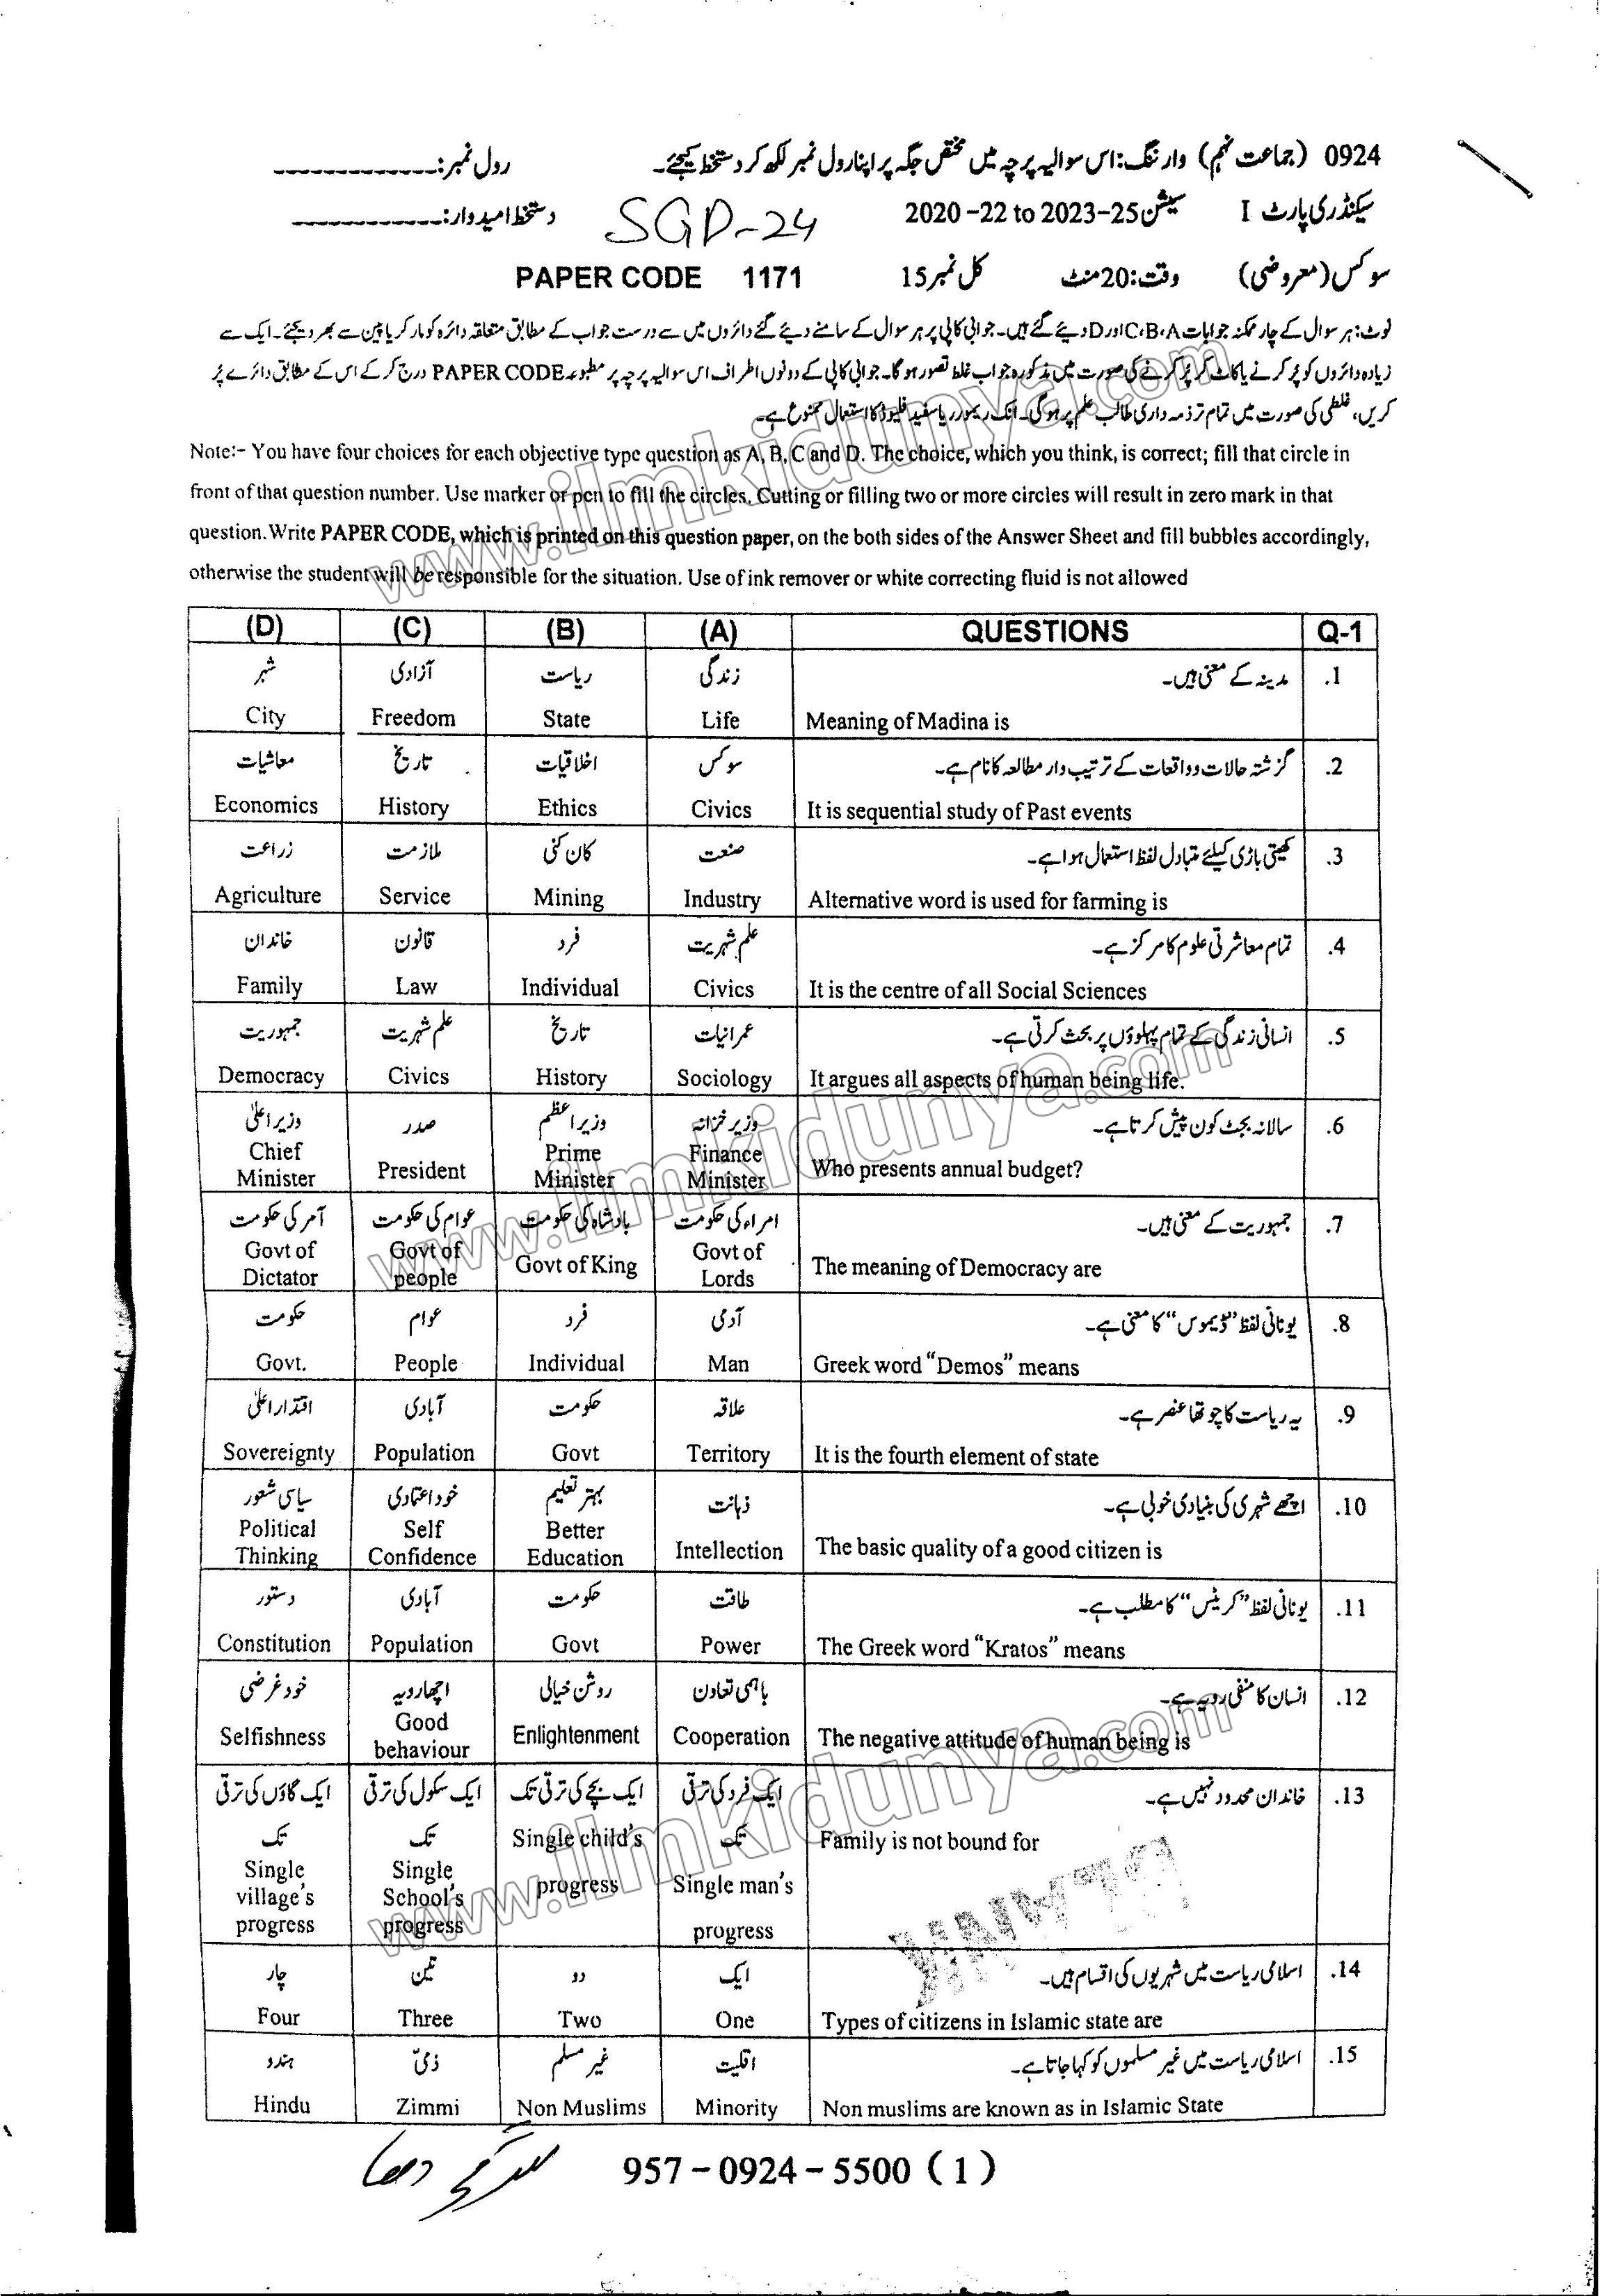 0924 (جماعت نہم) وارننگ: اس سوالیہ پرچہ میں مختص جگہ پر اپنا رول نمبر لکھ کر دستخط کیجئے۔ رول نمبر: ____________
سیکنڈری پارٹ I سیشن 2020-22 to 2023-25 SGD-24 دستخط امیدوار: ____________
سوکس (معروضی) وقت: 20 منٹ کل نمبر 15 PAPER CODE 1171
نوٹ: ہر سوال کے چار ممکنہ جوابات C،B،A اور D دیئے گئے ہیں۔ جوابی کاپی پر ہر سوال کے سامنے دیئے گئے دائروں میں سے درست جواب کے مطابق متعلقہ دائرہ کو مارکر یا پین سے بھر دیجئے۔ ایک سے
زیادہ دائروں کو پُر کرنے یا کاٹ کر پُر کرنے کی صورت میں مذکورہ جواب غلط تصور ہوگا۔ جوابی کاپی کے دونوں اطراف اس سوالیہ پرچہ پر مطبوعہ PAPER CODE درج کر کے اس کے مطابق دائرے پُر
کریں، غلطی کی صورت میں تمام تر ذمہ داری طالب علم پر ہوگی۔ انک ریموور یا سفید فلیوڈ کا استعمال ممنوع ہے۔
Note:- You have four choices for each objective type question as A, B, C and D. The choice, which you think, is correct; fill that circle in
front of that question number. Use marker or pen to fill the circles. Cutting or filling two or more circles will result in zero mark in that
question. Write PAPER CODE, which is printed on this question paper, on the both sides of the Answer Sheet and fill bubbles accordingly,
otherwise the student will be responsible for the situation. Use of ink remover or white correcting fluid is not allowed
(D) (C) (B) (A) QUESTIONS Q-1
شہر آزادی ریاست زندگی مدینہ کے معنی ہیں۔ .1
City Freedom State Life Meaning of Madina is
معاشیات تاریخ اخلاقیات سوکس گزشتہ حالات و واقعات کے ترتیب وار مطالعہ کا نام ہے۔ .2
Economics History Ethics Civics It is sequential study of Past events
زراعت ملازمت کان کنی صنعت کھیتی باڑی کیلئے متبادل لفظ استعمال ہوا ہے۔ .3
Agriculture Service Mining Industry Alternative word is used for farming is
خاندان قانون فرد علم شہریت تمام معاشرتی علوم کا مرکز ہے۔ .4
Family Law Individual Civics It is the centre of all Social Sciences
جمہوریت علم شہریت تاریخ عمرانیات انسانی زندگی کے تمام پہلوؤں پر بحث کرتی ہے۔ .5
Democracy Civics History Sociology It argues all aspects of human being life.
وزیر اعلیٰ صدر وزیر اعظم وزیر خزانہ سالانہ بجٹ کون پیش کرتا ہے۔ .6
Chief Minister President Prime Minister Finance Minister Who presents annual budget?
آمر کی حکومت عوام کی حکومت بادشاہ کی حکومت امراء کی حکومت جمہوریت کے معنی ہیں۔ .7
Govt of Dictator Govt of people Govt of King Govt of Lords The meaning of Democracy are
حکومت عوام فرد آدمی یونانی لفظ "ڈیموس" کا معنی ہے۔ .8
Govt. People Individual Man Greek word "Demos" means
اقتدار اعلیٰ آبادی حکومت علاقہ یہ ریاست کا چوتھا عنصر ہے۔ .9
Sovereignty Population Govt Territory It is the fourth element of state
سیاسی شعور خود اعتمادی بہتر تعلیم ذہانت اچھے شہری کی بنیادی خوبی ہے۔ .10
Political Thinking Self Confidence Better Education Intellection The basic quality of a good citizen is
دستور آبادی حکومت طاقت یونانی لفظ "کریٹس" کا مطلب ہے۔ .11
Constitution Population Govt Power The Greek word "Kratos" means
خود غرضی اچھا رویہ روشن خیالی باہمی تعاون انسان کا منفی رویہ ہے۔ .12
Selfishness Good behaviour Enlightenment Cooperation The negative attitude of human being is
ایک گاؤں کی ترقی تک ایک سکول کی ترقی تک ایک بچے کی ترقی تک ایک فرد کی ترقی تک خاندان محدود نہیں ہے۔ .13
Single village's progress Single School's progress Single child's progress Single man's progress Family is not bound for
چار تین دو ایک اسلامی ریاست میں شہریوں کی اقسام ہیں۔ .14
Four Three Two One Types of citizens in Islamic state are
ہندو ذمّی غیر مسلم اقلیت اسلامی ریاست میں غیر مسلموں کو کہا جاتا ہے۔ .15
Hindu Zimmi Non Muslims Minority Non muslims are known as in Islamic State
957-0924-5500 (1)
www.ilmkidunya.com
www.ilmkidunya.com
www.ilmkidunya.com